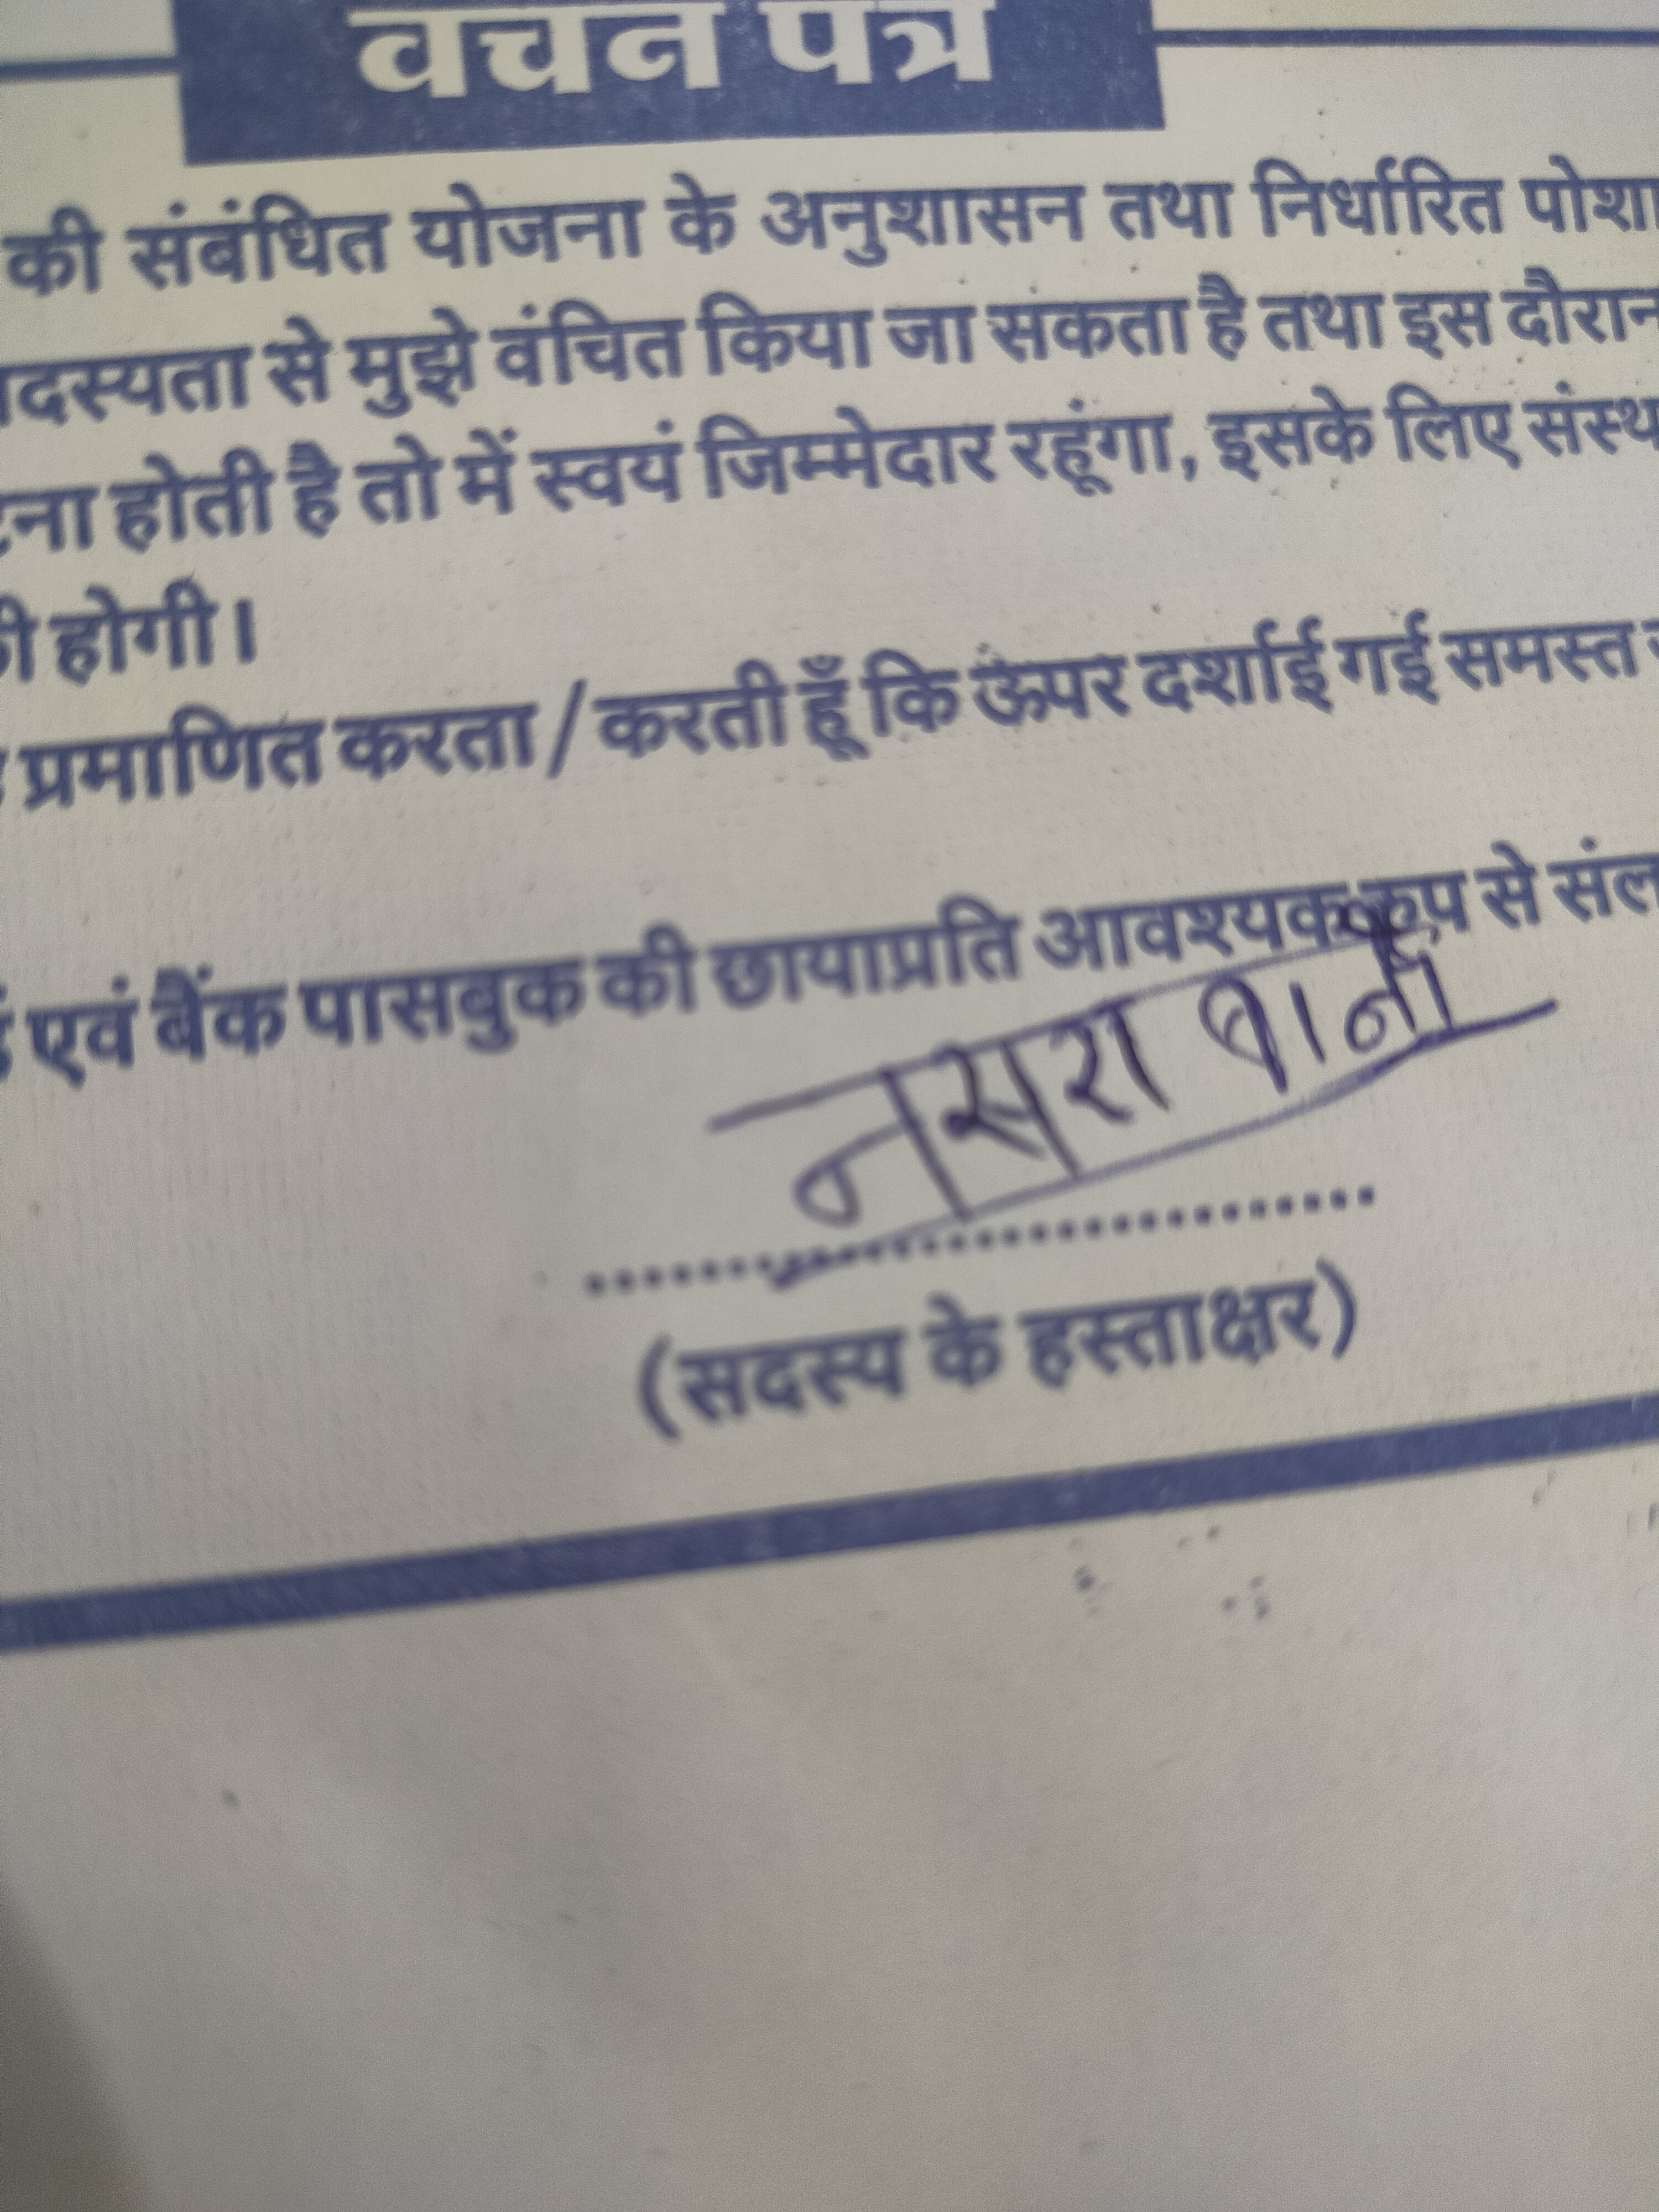 वचन पत्र
की संबंधित योजना के अनुशासन तथा निर्धारित पोशा
दस्यता से मुझे वंचित किया जा सकता है तथा इस दौरान
ना होती है तो में स्वयं जिम्मेदार रहूंगा, इसके लिए संस्थ
होगी।
प्रमाणित करता / करती हूँ कि ऊपर दर्शाई गई समस्त
एवं बैंक पासबुक की छायाप्रति आवश्यक रूप से संल
नसरा बानो
(सदस्य के हस्ताक्षर)